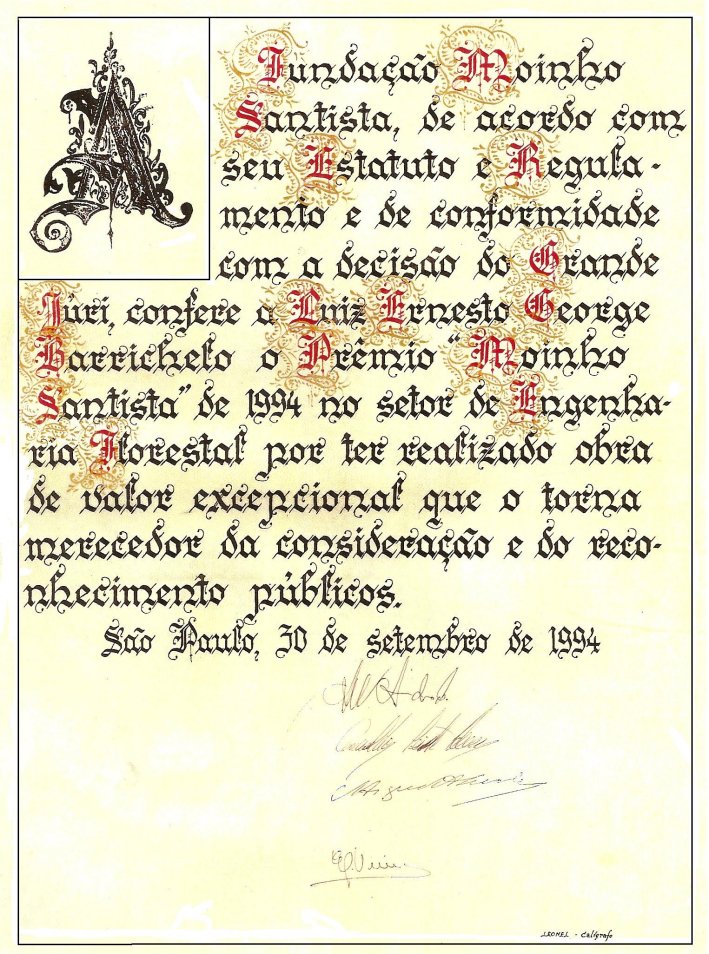 A Fundação Moinho
Santista, de acordo com
seu Estatuto e Regula-
mento e de conformidade
com a decisão do Grande
Júri, confere a Luiz Ernesto George
Barrichelo o Prêmio "Moinho
Santista" de 1994 no setor de Engenha-
ria Florestal por ter realizado obra
de valor excepcional que o torna
merecedor da consideração e do reco-
nhecimento públicos.
São Paulo, 30 de setembro de 1994
LEONEL - Calígrafo